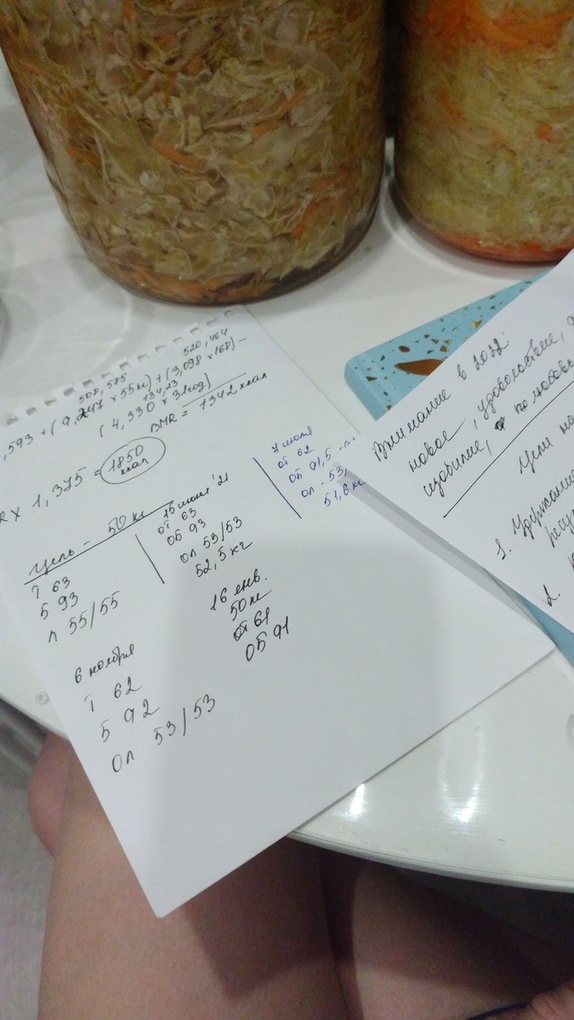 520,464
508,585
,593 + (9,247 × 55кг) + (3,098 × 168) -
134,23
(4,330 × 31год)
BMR = 1342 ккал
R × 1,375 = 1850
ккал
Цель - 50 кг
Т 63
Б 93
Л 55/55
15 июня '21
ОТ 63
ОБ 93
ОЛ 53/53
52,5 кг
ОТ 62
ОБ 91,5
ОЛ - 53,
51,6 кг
6 ноября
Т 62
Б 92
ОЛ 53/53
16 янв.
50 кг
ОТ 61
ОБ 91
Внимание в 2022:
новое, удовольствие,
изобилие, любовь
Цели на
1. Удержание
2.